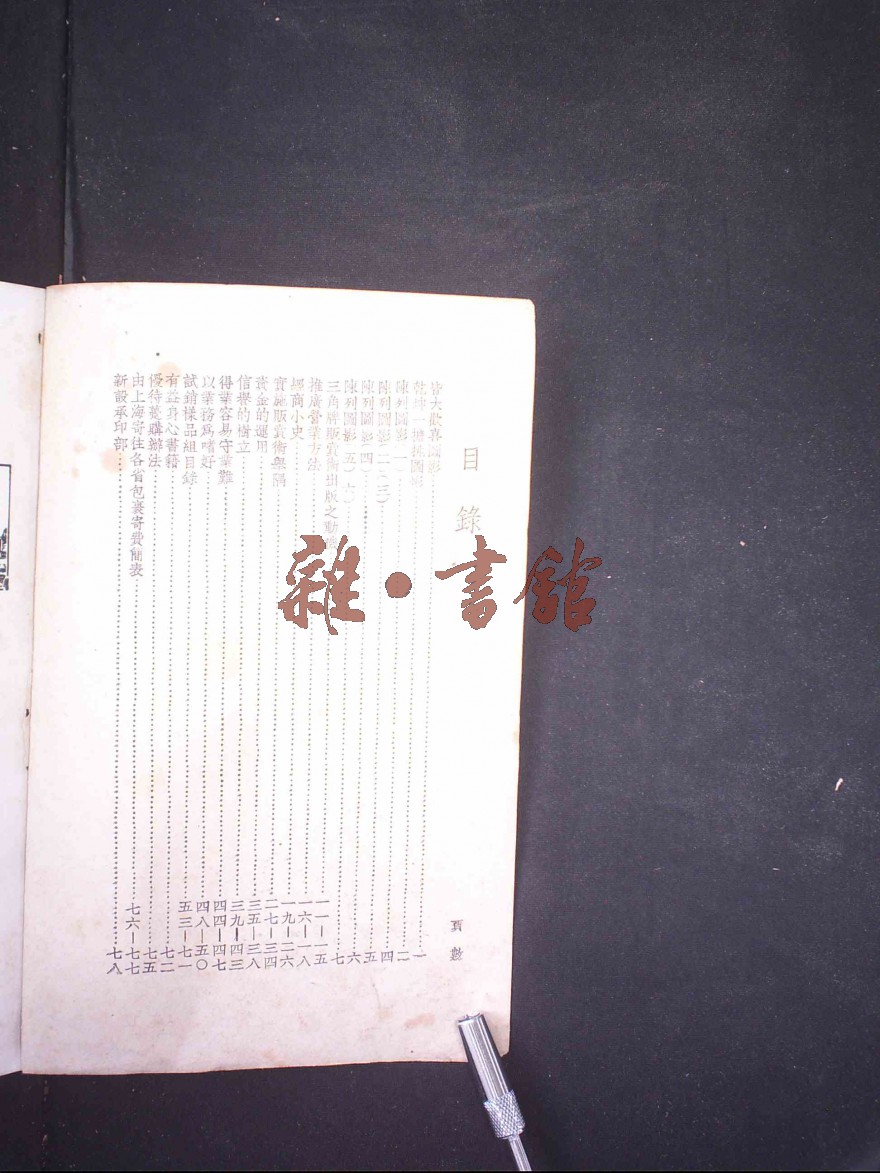 目錄
頁數
皆大歡喜圖影……一
乾坤一擔挑圖影……二
陳列圖影(一)……四
陳列圖影(二)(三)……五
陳列圖影(四)……六
陳列圖影(五)(六)……七
三角牌販賣術出版之動……一一—一五
推廣營業方法……一六—一八
經商小史……一九—二六
實施販賣術舉隅……二七—三四
資金的運用……三五—三八
信譽的樹立……三九—四三
得業容易守業難……四四—四七
以業務爲嗜好……四八—五〇
試銷樣品組目錄……五三—七一
有益身心書籍……七二
優待躉購辦法……七五
由上海寄往各省包裹寄費簡表……七六—七七
新設承印部……七八
雜·書館